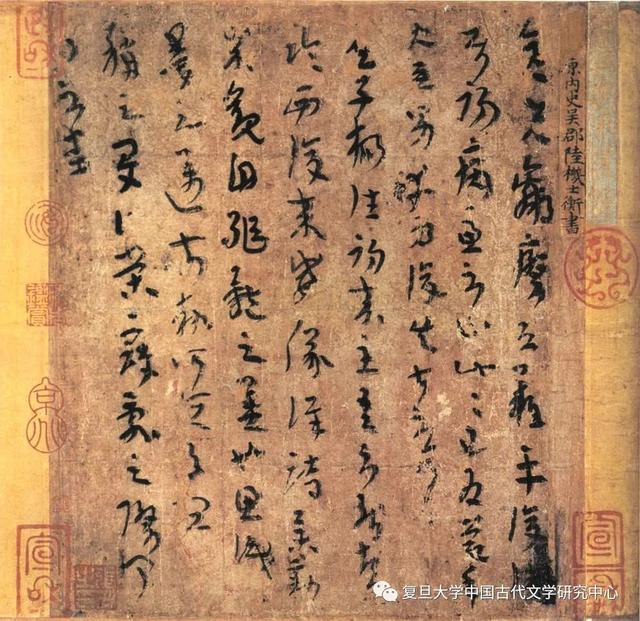 原內史吳郡陸機士衡書
彦先羸瘵恐難平復往
屬初病慮不止此此已為慶承
使唯男幸為復失前憂耳
子楊往初來主吾不能盡
臨西復來威儀詳跱舉動
成觀自軀體之美也思識
量之邁前執所恒有宜
稱之夏伯榮寇亂之際聞
問不悉
宣和
復旦大学中国古代文学研究中心